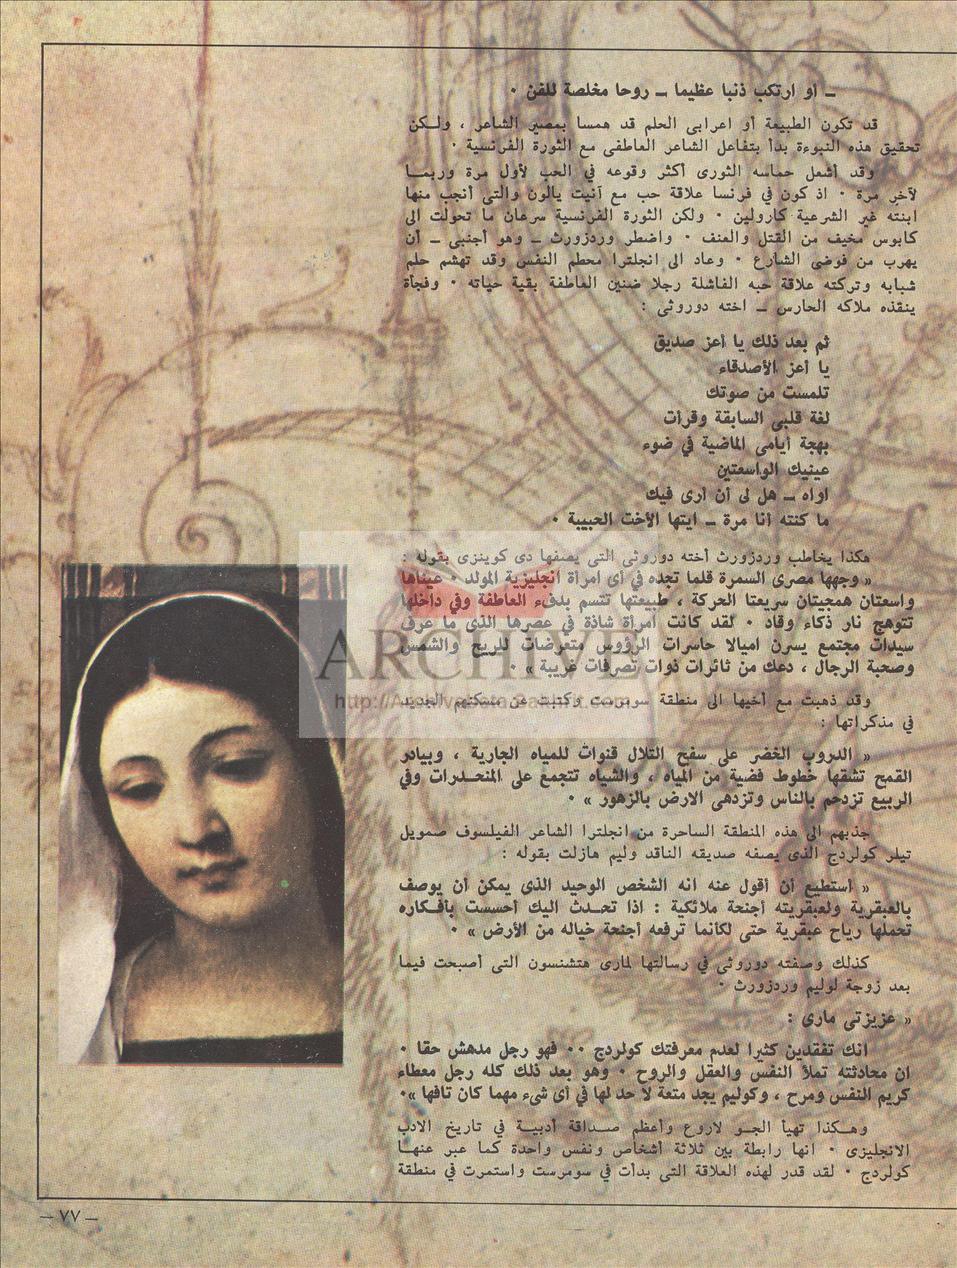 ــ أو ارتكب ذنبا عظيما ــ روحا مخلصة للفن ·
قد تكون الطبيعة أو اعرابى الحلم قد همسا بمصير الشاعر ، ولكن
تحقيق هذه النبوءة بدأ بتفاعل الشاعر العاطفى مع الثورة الفرنسية ·
وقد أشعل حماسه الثورى أكثر وقوعه في الحب لأول مرة وربما
لآخر مرة · اذ كون في فرنسا علاقة حب مع آنيت يالون والتى أنجب منها
ابنته غير الشرعية كارولين · ولكن الثورة الفرنسية سرعان ما تحولت الى
كابوس مخيف من القتل والعنف · واضطر وردزورث ــ وهو أجنبى ــ أن
يهرب من فوضى الشارع · وعاد الى انجلترا محطم النفس وقد تهشم حلم
شبابه وتركته علاقة حبه الفاشلة رجلا ضنين العاطفة بقية حياته · وفجأة
ينقذه ملاكه الحارس ــ اخته دوروثى :
ثم بعد ذلك يا أعز صديق
يا أعز الأصدقاء
تلمست من صوتك
لغة قلبى السابقة وقرأت
بهجة أيامى الماضية في ضوء
عينيك الواسعتين
اواه ــ هل لى أن أرى فيك
ما كنته أنا مرة ــ ايتها الأخت الحبيبة ·
هكذا يخاطب وردزورث أخته دوروثى التى يصفها دى كوينزى بقوله :
« وجهها مصرى السمرة قلما تجده في أى امرأة انجليزية المولد · عيناها
واسعتان همجيتان سريعتا الحركة ، طبيعتها تتسم بدفء العاطفة وفي داخلها
تتوهج نار ذكاء وقاد · لقد كانت امرأة شاذة في عصرها الذى ما عرف
سيدات مجتمع يسرن اميالا حاسرات الرؤوس متعرضات للريح والشمس
وصحبة الرجال ، دعك من ثائرات ذوات تصرفات غريبة » ·
ARCHIVE
http://Archivebeta.Sakhrit.com
وقد ذهبت مع أخيها الى منطقة سومرست وكتبت عن مسكنهم الجديد
في مذكراتها :
« الدروب الخضر على سفح التلال قنوات للمياه الجارية ، وبيادر
القمح تشقها خطوط فضية من المياه ، والشياه تتجمع على المنحدرات وفي
الربيع تزدحم بالناس وتزدهى الارض بالزهور » ·
جذبهم الى هذه المنطقة الساحرة من انجلترا الشاعر الفيلسوف صمويل
تيلر كولردج الذى يصفه صديقه الناقد وليم هازلت بقوله :
« أستطيع أن أقول عنه انه الشخص الوحيد الذى يمكن أن يوصف
بالعبقرية ولعبقريته أجنحة ملائكية : اذا تحدث اليك أحسست بأفكاره
تحملها رياح عبقرية حتى لكأنما ترفعه أجنحة خياله من الأرض » ·
كذلك وصفته دوروثى في رسالتها لمارى هتشنسون التى أصبحت فيما
بعد زوجة لوليم وردزورث ·
« عزيزتى مارى :
انك تفقدين كثيرا لعدم معرفتك كولردج ·· فهو رجل مدهش حقا ·
ان محادثته تملأ النفس والعقل والروح · وهو بعد ذلك كله رجل معطاء
كريم النفس ومرح ، وكوليم يجد متعة لا حد لها في أى شىء مهما كان تافها »·
وهكذا تهيأ الجو لاروع وأعظم صداقة أدبية في تاريخ الادب
الانجليزى · انها رابطة بين ثلاثة أشخاص ونفس واحدة كما عبر عنها
كولردج · لقد قدر لهذه العلاقة التى بدأت في سومرست واستمرت في منطقة
ــ ٧٧ ــ